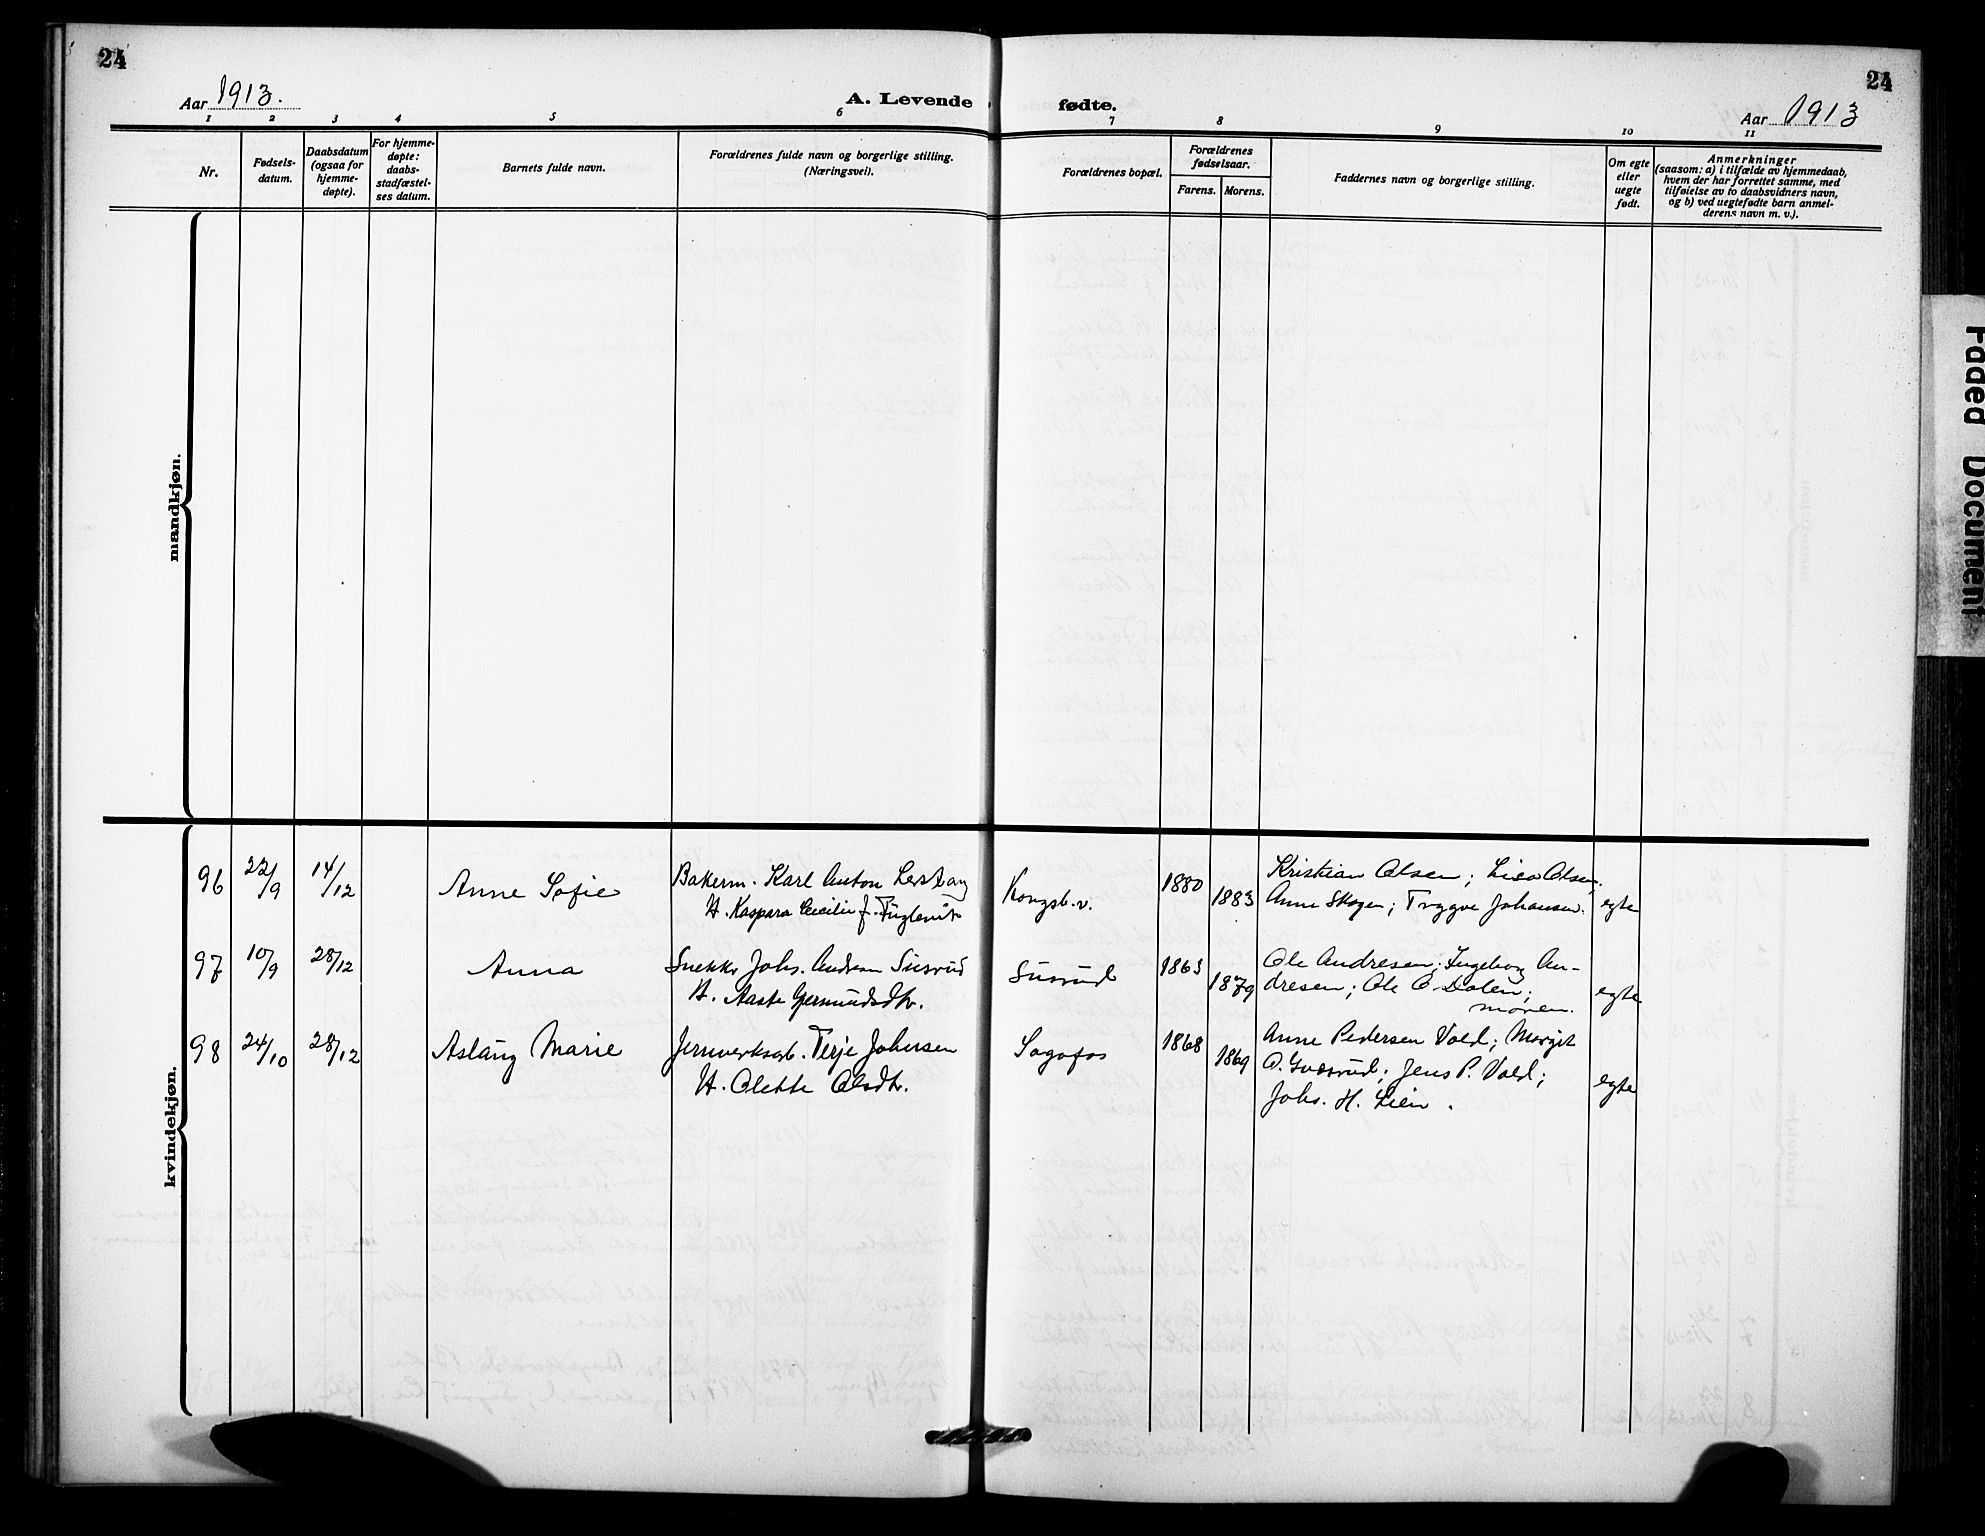 24
24
Aar 1913.
A. Levende fødte.
Aar 1913
1 2 3 4 5 6 7 8 9 10 11
Nr.
Fødsels-
datum.
Daabsdatum
(ogsaa for
hjemme-
døpte).
For hjemme-
døpte:
daabs-
stadfæstel-
ses datum.
Barnets fulde navn.
Forældrenes fulde navn og borgerlige stilling.
(Næringsvei).
Forældrenes bopæl.
Forældrenes
fødselsaar.
Farens. Morens.
Faddernes navn og borgerlige stilling.
Om egte
eller
uegte
født.
Anmerkninger
(saasom: a) i tilfælde av hjemmedaab,
hvem der har forrettet samme, med
tilføielse av to daabsvidners navn,
og b) ved uegtefødte barn anmel-
derens navn m. v.).
mandkjøn.
kvindekjøn.
96 22/9 14/12 Anne Sofie
Bakerm. Karl Anton
H. Kaspara Cecilie f. Fuglevik
Kongsb. v.
1880
1883
Kristian Olsen; Lisa Olsen.
Anne Skogen; Trygve Johansen.
egte
97 10/9 28/12 Anna
Snekker Johs. Andersen Susrud
H. Aaste Gjermundsdtr.
Susrud
1863
1879
Ole Andresen; Ingeborg An-
dresen; Ole O Dolen;
moren.
egte
98 24/10 28/12 Aslaug Marie
Jernverksarb. Terje Johnsen
H. Olette Olsdtr.
Sagafos
1868
1869
Anne Pedersen Vold; Margit
O. ; Jens P. Vold;
Johs. H. Lien.
egte
Faded Document